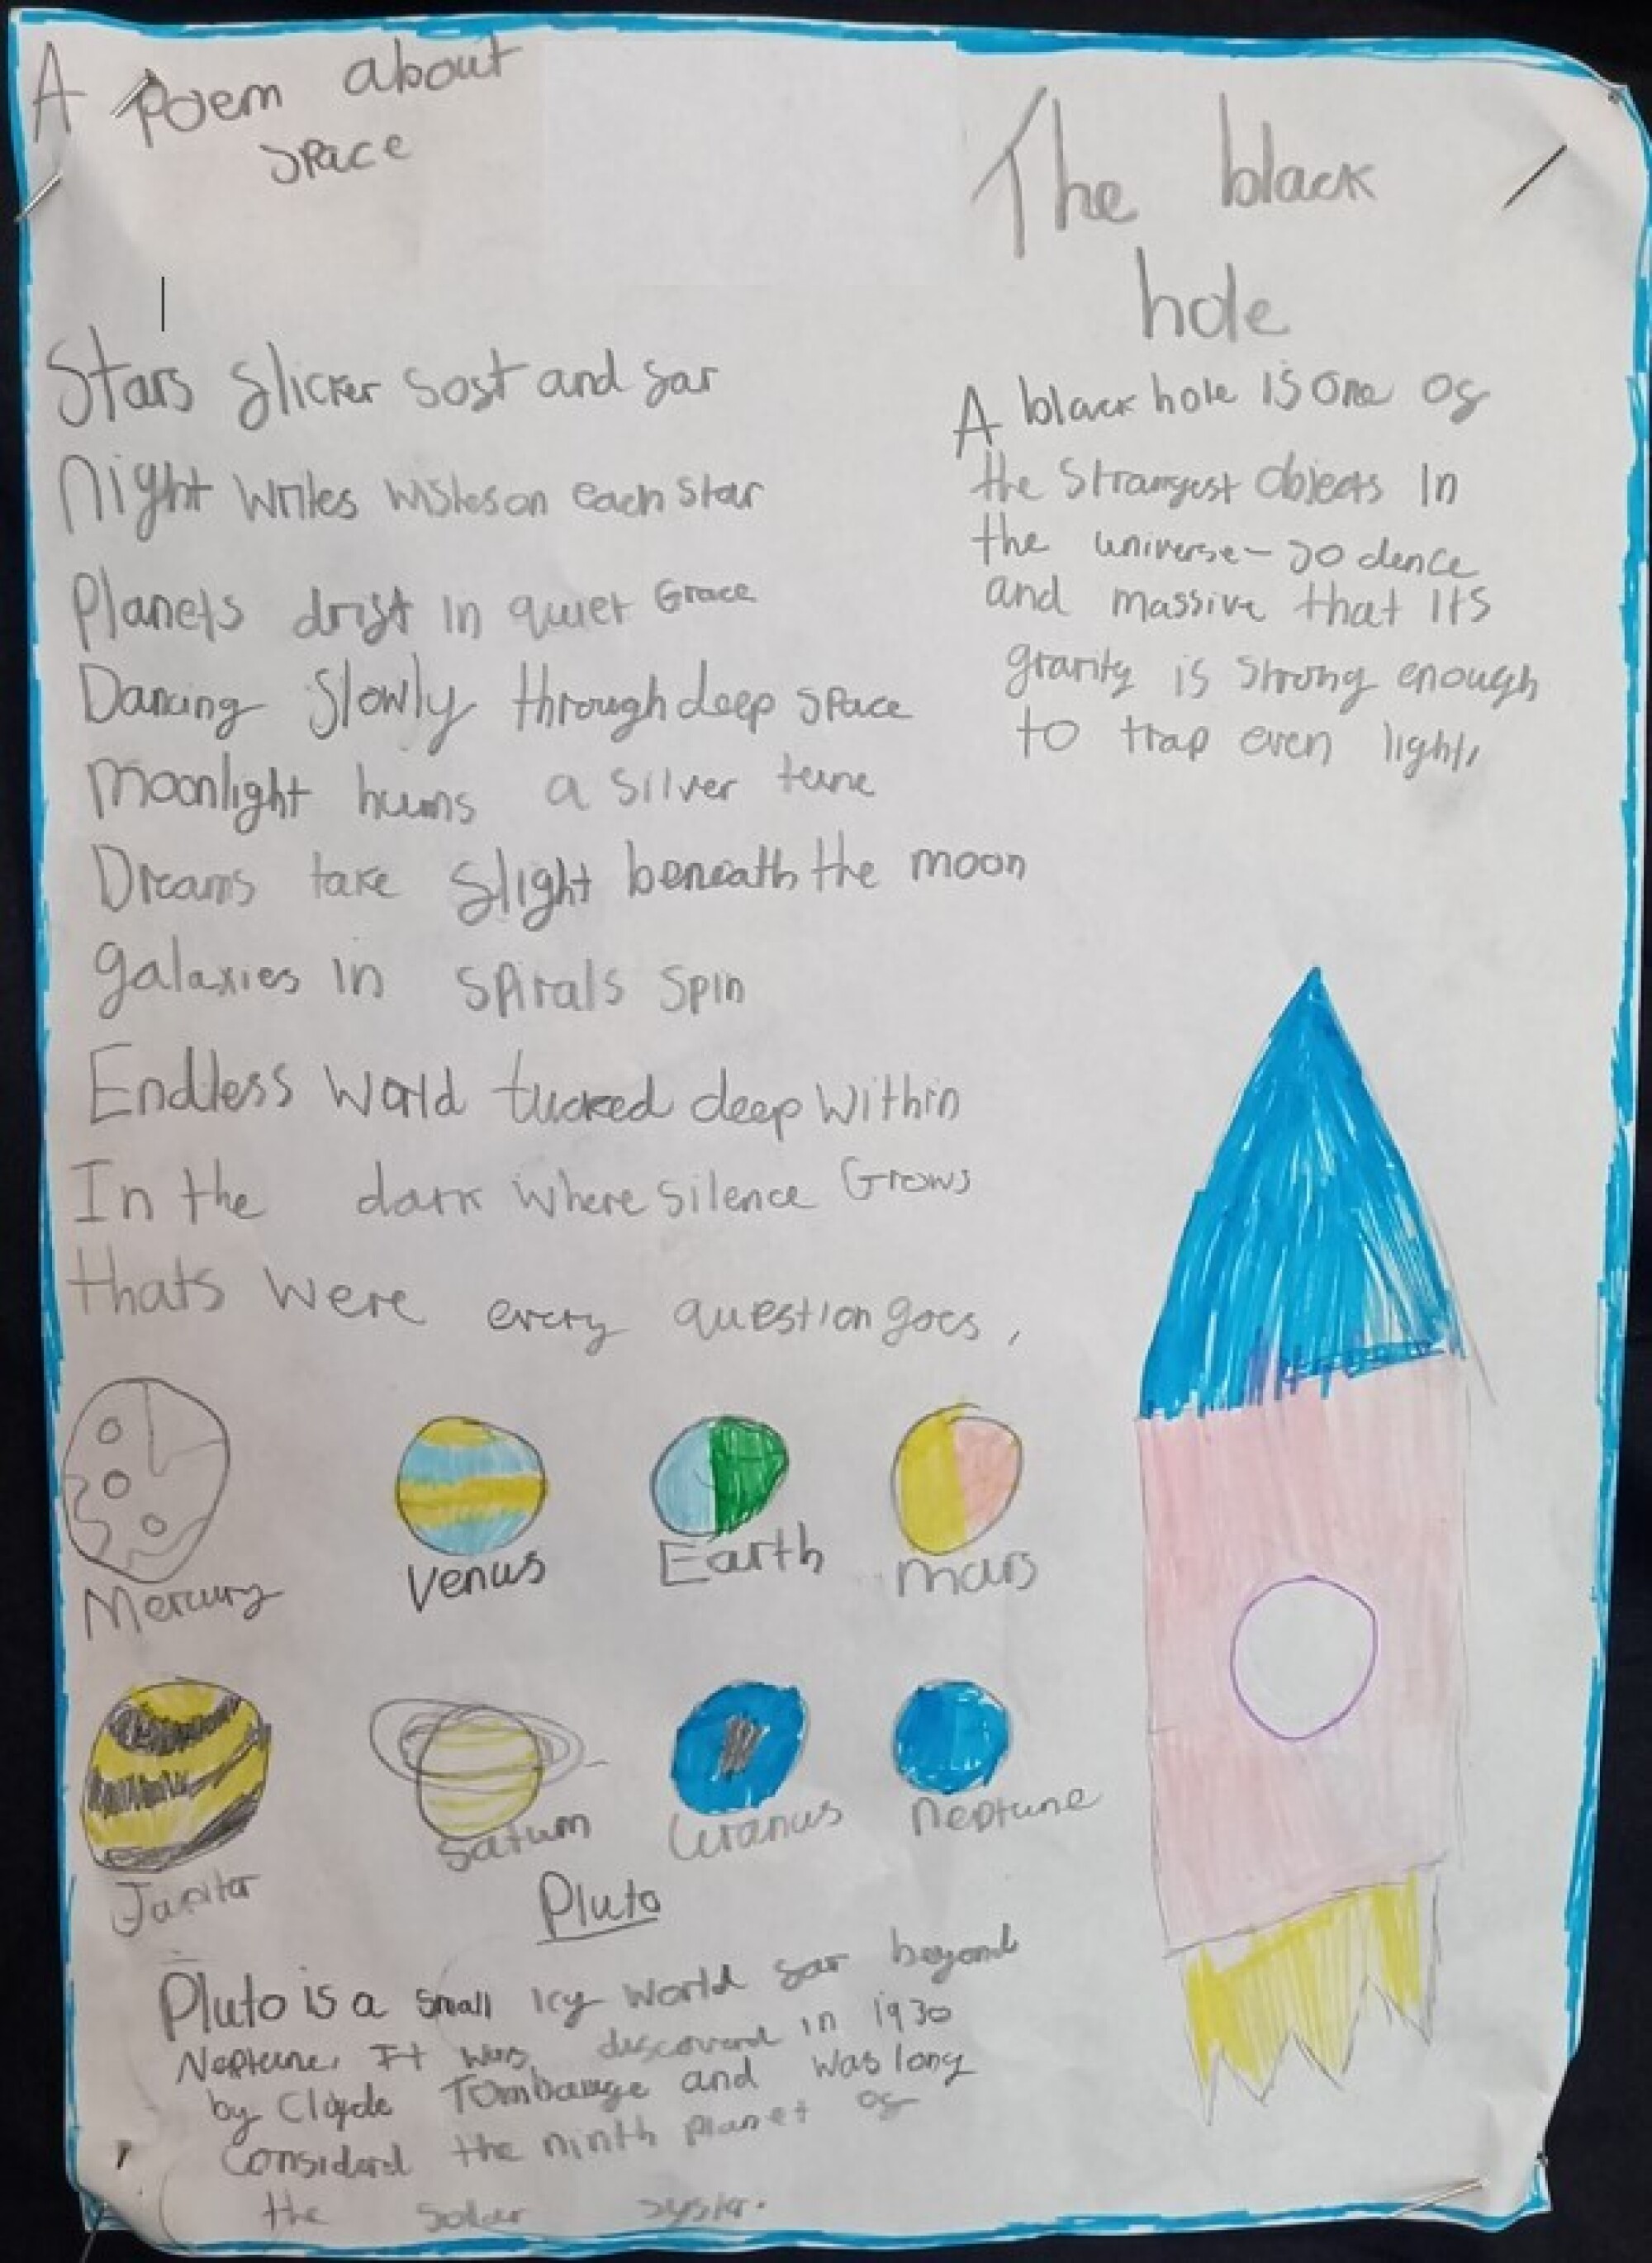 A Poem about
space
Stars flicker soft and far
Night writes wishes on each star
Planets drift in quiet Grace
Dancing slowly through deep space
Moonlight hums a silver tune
Dreams take flight beneath the moon
galaxies in spirals spin
Endless World tucked deep within
In the dark where silence Grows
thats were every question goes,
The black
hole
A black hole is one of
the strangest objects in
the universe- so dence
and massive that its
gravity is strong enough
to trap even light,
Mercury
Venus
Earth
Mars
Jupiter
Saturn
Uranus
Neptune
Pluto
Pluto is a small icy world far beyond
Neptune. It was discoverd in 1930
by Clyde Tombauge and was long
Considerd the ninth planet of
the solar